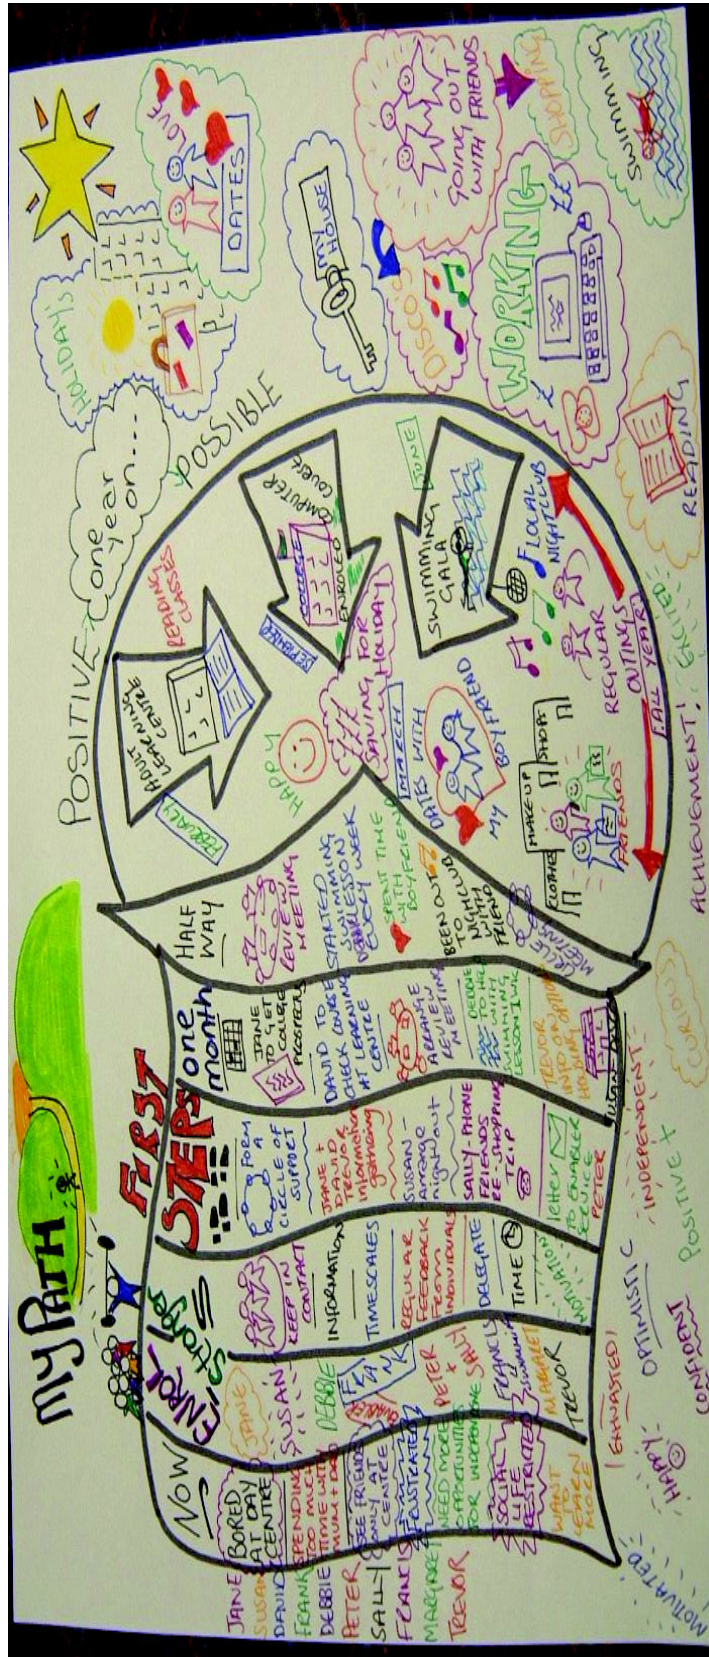 MY PATH
JANE
SUSAN
DAVID
FRANK
DEBBIE
PETER
SALLY
FRANCIS
MARGARET
TREVOR
NOW
BORED
AT DAY
CENTRE
SPENDING
TOO MUCH
TIME WITH
MUM + DAD
SEE FRIENDS
ONLY AT
CENTRE
FRUSTRATED
NEED MORE
OPPORTUNITIES
FOR INDEPENDENCE
SOCIAL
LIFE
RESTRICTED
WANT
TO
LEARN
MORE
ENROL
JANE
SUSAN
DEBBIE
FRANK
ENABLER
PETER
+
SALLY
FRANCIS
MARGARET
TREVOR
Stronger
KEEP IN
CONTACT
INFORMATION
TIMESCALES
REGULAR
FEEDBACK
FROM
INDIVIDUALS
DELEGATE
TIME
MOTIVATION
FIRST
STEPS
FORM
A
CIRCLE OF
SUPPORT
JANE +
DAVID
TREVOR
Information
gathering
SUSAN -
arrange
night out
SALLY-PHONE
FRIENDS
RE-SHOPPING
TRIP
letter
TO ENABLER
SERVICE
PETER
one
month
JANE
TO GET
COLLEGE
PROSPECTUS
DAVID TO
CHECK COURSE
AT LEARNING
CENTRE
ARRANGE
REVIEW
MEETING
DEBBIE
TO HELP
WITH
SWIMMING
LESSON
TREVOR
INFO ON OPTIONS
HOUSING
HALF
WAY
REVIEW
MEETING
STARTED
SWIMMING
LESSON
EVERY WEEK
SPENT TIME
WITH
BOYFRIEND
BEEN OUT
TO
NIGHT CLUB
WITH
FRIEND
CIRCLE
MEETING
POSITIVE + POSSIBLE
one
year
on...
FEBRUARY
ADULT
LEARNING
CENTRE
READING
CLASSES
HAPPY
SEPTEMBER
COLLEGE
ENROLED
COMPUTER
COURSE
SAVING FOR
HOLIDAY
MARCH
DATES WITH
MY
BOYFRIEND
JUNE
SWIMMING
GALA
CLOTHES
MAKE-UP
SHOPS
FRIENDS
LOCAL
NIGHTCLUB
REGULAR
OUTINGS
(ALL YEAR)
HOLIDAYS
LOVE
DATES
MY
HOUSE
DISCO'S
GOING OUT
WITH FRIENDS
SHOPPING
SWIMMING
WORKING
READING
MOTIVATED
HAPPY
EXHAUSTED!
OPTIMISTIC
CONFIDENT
INDEPENDENT
POSITIVE +
CURIOUS
ACHIEVEMENT!
EXCITED